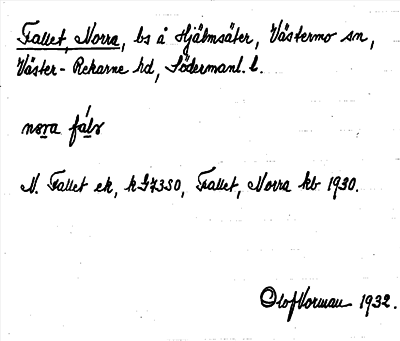 Fallet, Norra, bs å Hjälmsäter, Västermo sn,
Väster-Rekarne hd, Södermanl. l.
nora fálv
N. Fallet ek, k G7350, Fallet, Norra kb 1930.
Olof Vorman 1932.